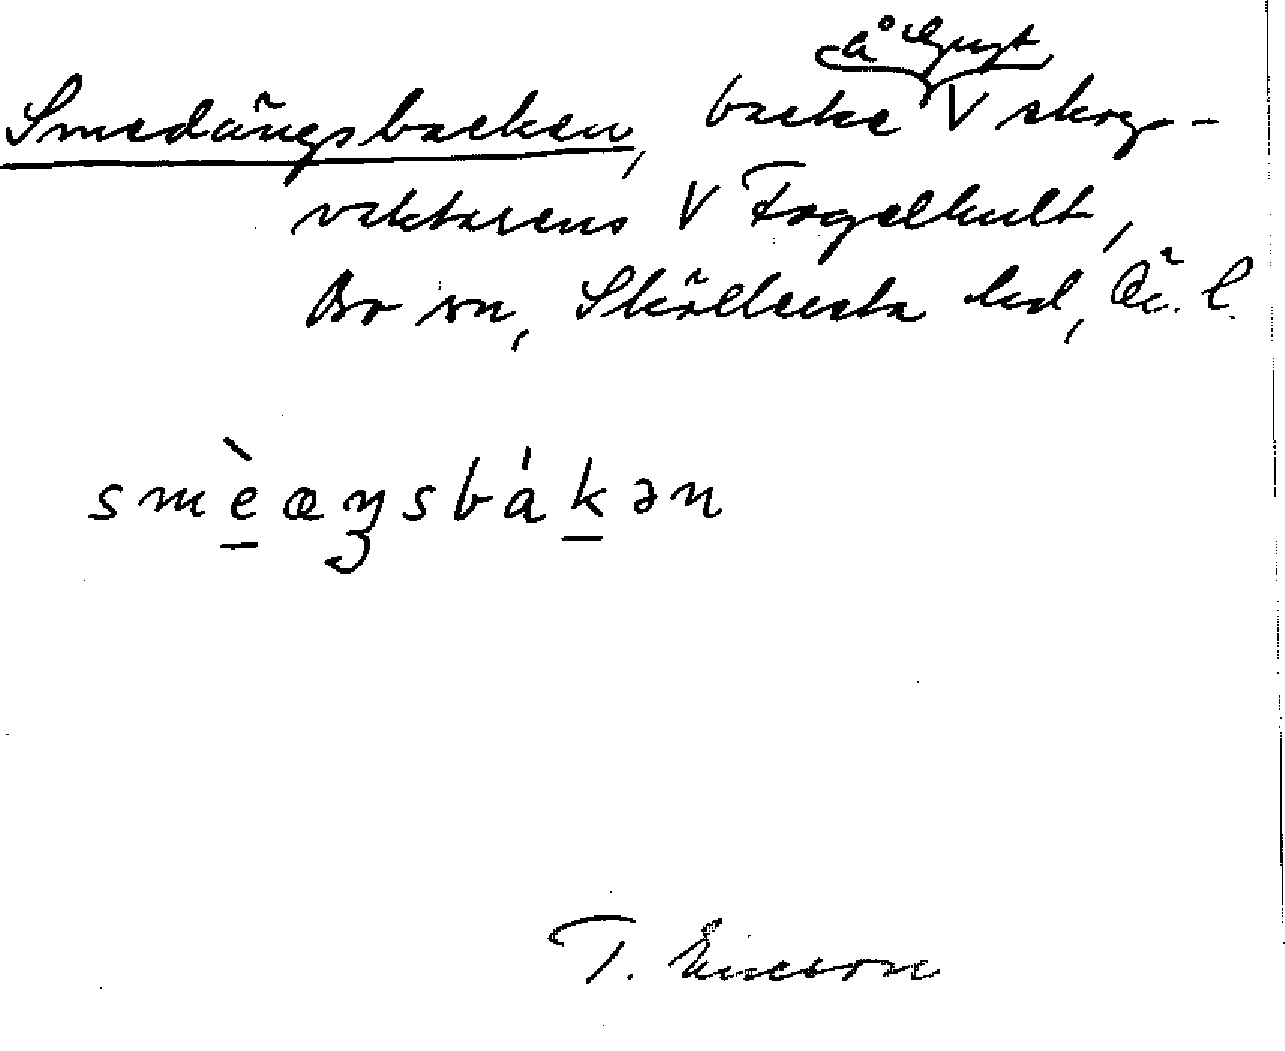 å Gryt
Smedängsbacken, backe V skog-
vaktarens V Fogelhult,
Bo sn, Sköllersta hd, Ö. l.
smèæŋsbákən
T. Ericson